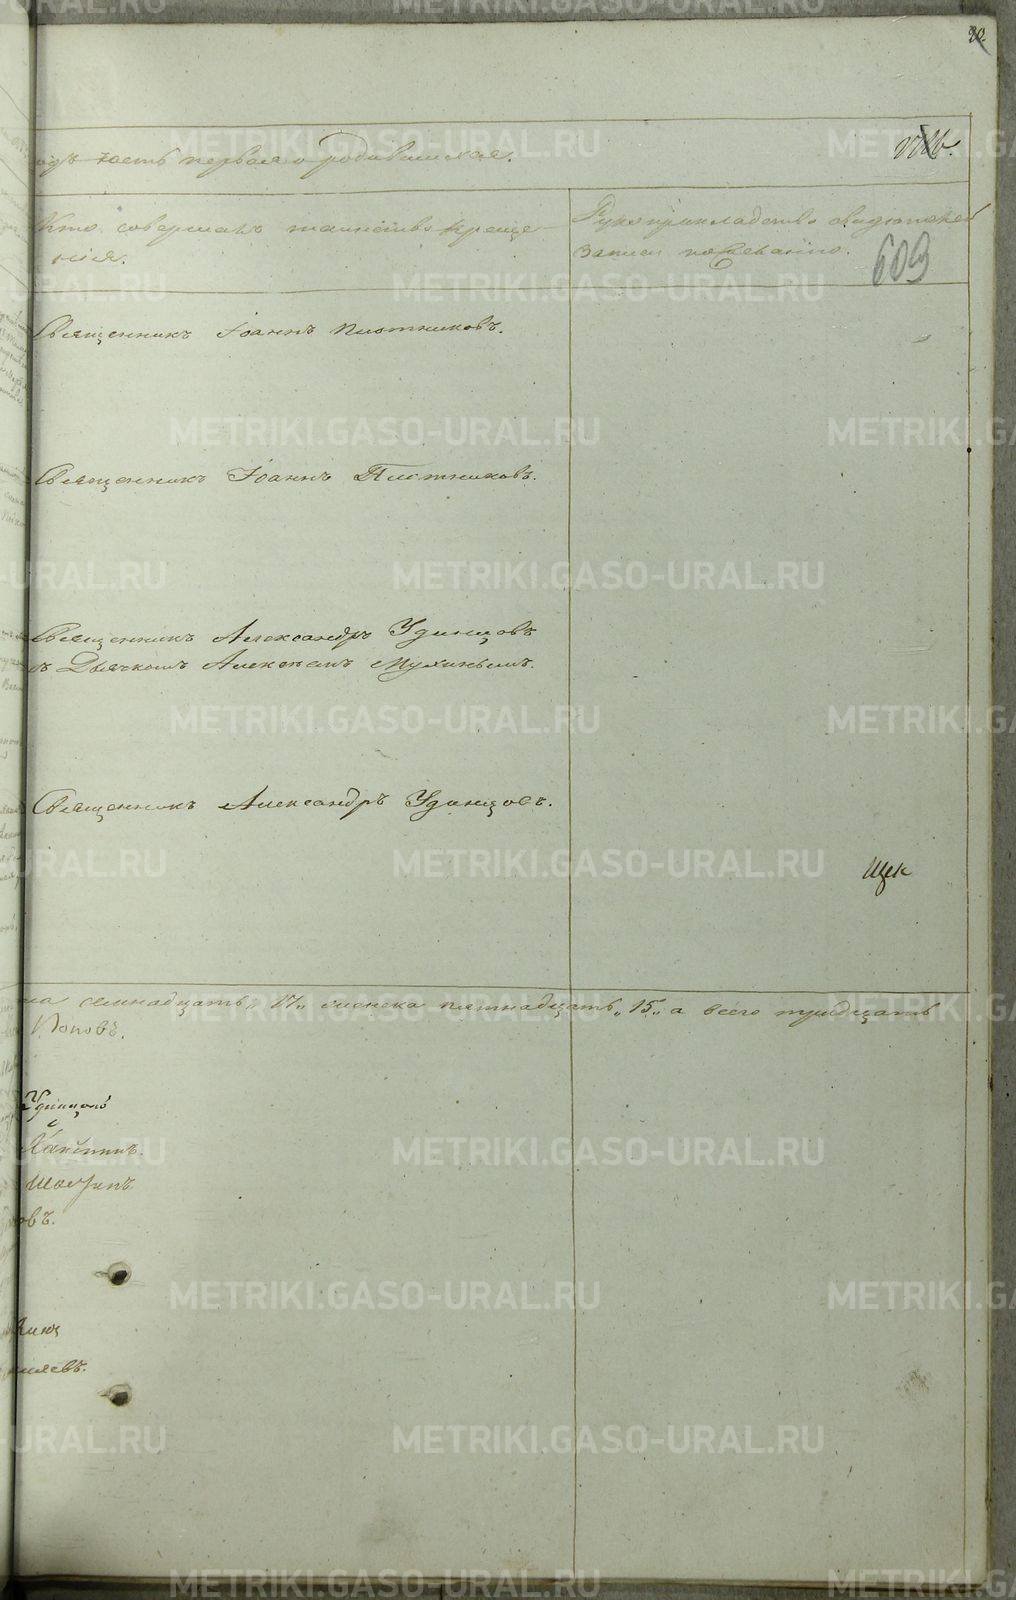 одъ часть первая о родившихся.
Кто совершалъ таинство креще-
нія.
Рукоприкладство свидѣтелей
записи по желанію.
609
Священникъ Іоаннъ Плотниковъ.
Священникъ Іоаннъ Плотниковъ.
Священникъ Александръ Удинцовъ
съ Дьячкомъ Алексѣемъ Мухинымъ.
Священникъ Александръ Удинцовъ.
на семнадцать „17„ женска пятнадцать „15„ а всего тридцать
Поповъ.
Удинцовъ
METRIKI.GASO-URAL.RU